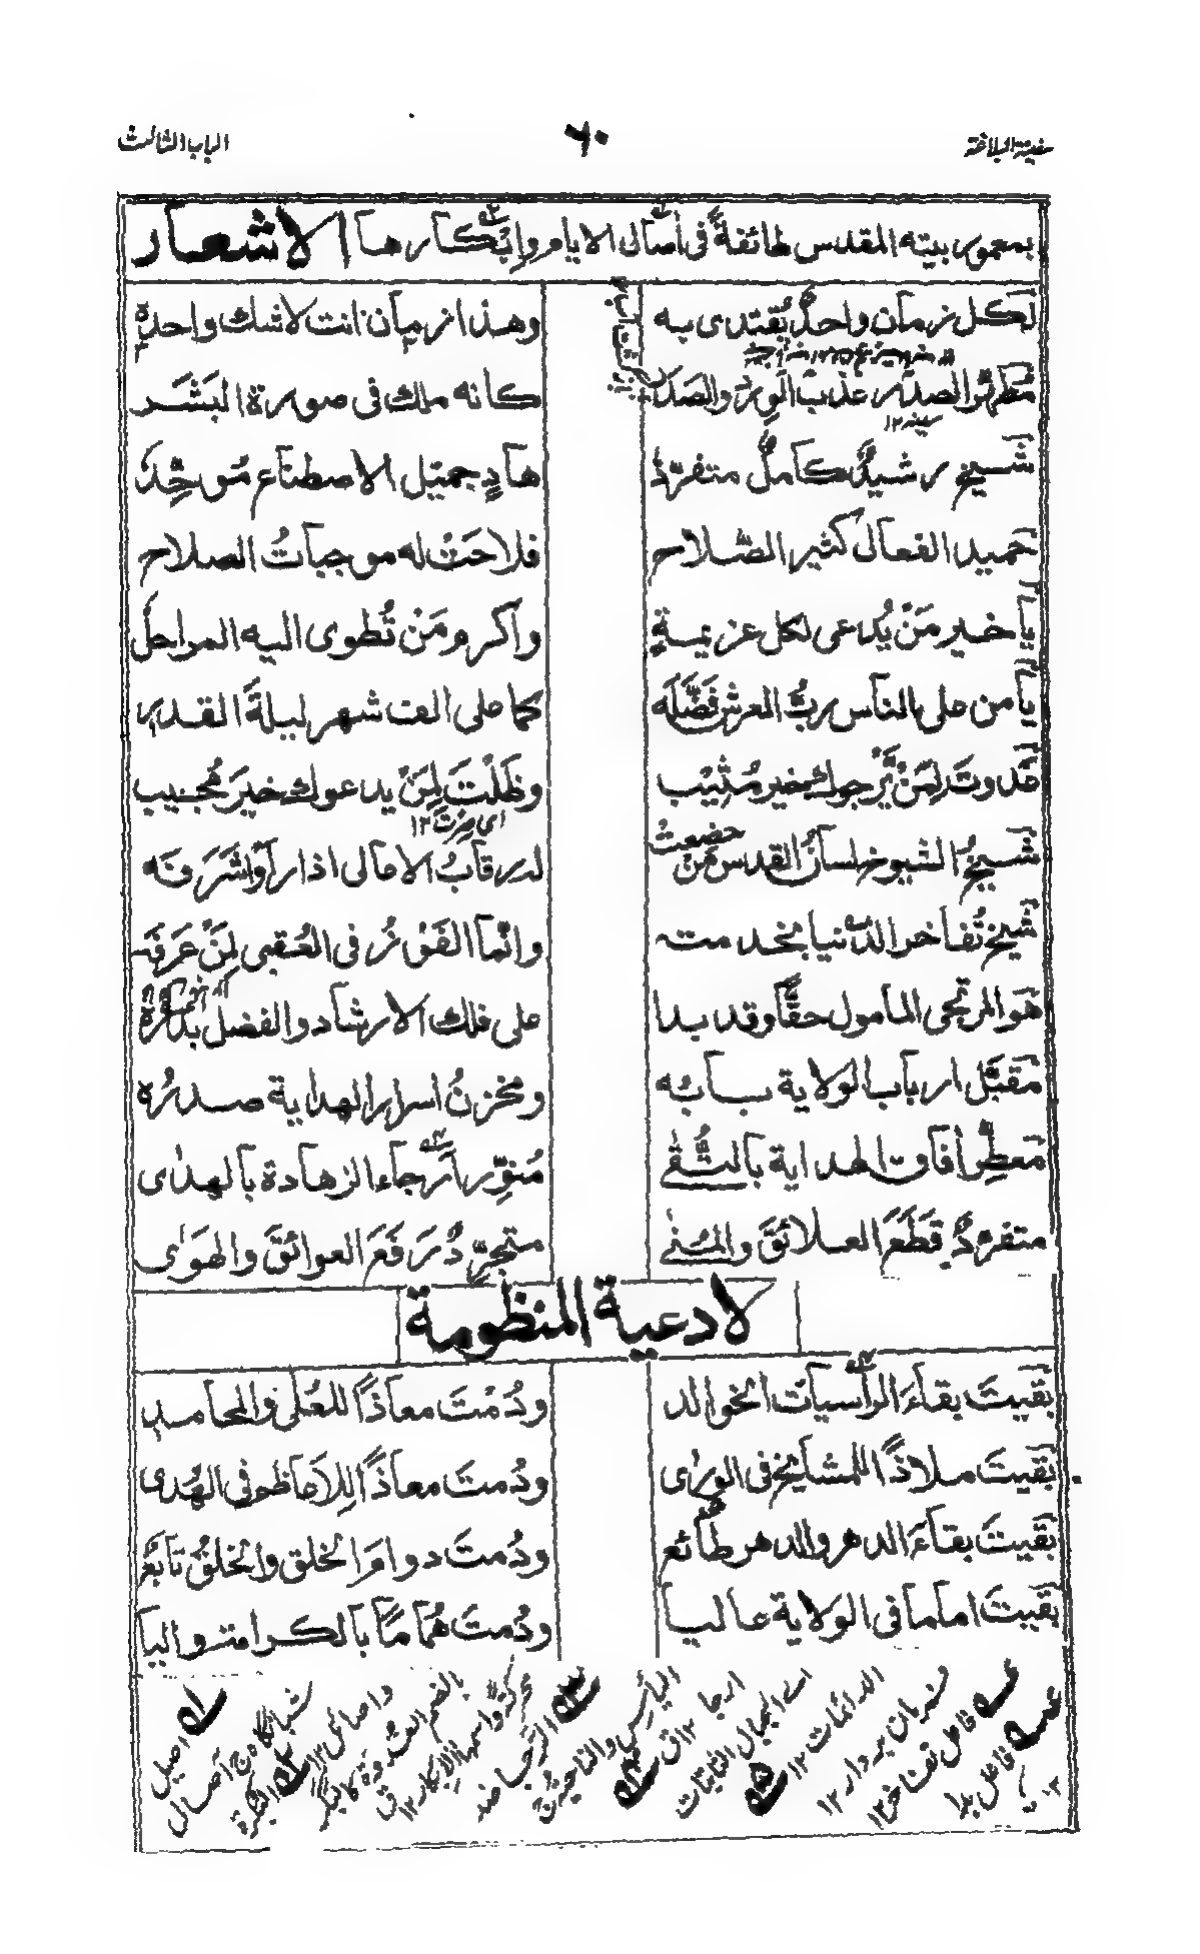 سفينة البلاغة ٦٠ الباب الثالث
بمعمور بيته المقدس طائفةً في اٰصال الايام وابكارها الاشعار
لكل زمان واحدٌ يُقتدى به وهذا زمان انت لاشك واحده
مُطهَّر الصدر عذبُ الوِرد والصدر كانه ملك في صورة البَشَر
شيخ رشيدٌ كاملٌ متفرّدٌ هادٍ جميل الاصطناع مُوحِّدٌ
حميد الفعال كثير الصّلاح فلاحَتْ له موجباتُ الصلاح
يا خير مَنْ يُدعى لكل عزيمةٍ واكرم مَنْ تُطوى اليه المراحلُ
يا من على الناس ربُّ العرش فَضَّلَه كما على الف شهر ليلةَ القدر
غَدوتَ لِمَنْ يَّرجوك خير مُثِيْب وظَلْتَ لِمَنْ يدعوك خيرَ مُجيب
اى صِرْتَ ١٢
شيخُ الشيوخ لسانُ القدس مَن خضعتْ له رقابُ الاهالى اذا راَوْا شَرَفَه
شيخ تُفاخر الدنيا بخدمته وانّما الفَوْزُ في العُقبى لِمَنْ عَرَفَه
هو المرتجى المامول حقًّا وقد بدا على فلك الارشاد والفضل بدرُه
مقبَّل ارباب الولاية بابُه ومخزنُ اسرار الهداية صدرُه
معطِّر اٰفاق الهداية بالتُّقٰى مُنوِّر ارجاء الزهادة بالهدٰى
متفرّدٌ قَطَعَ العلائقَ والمُنٰى متجرّدٌ رَفَعَ العوائقَ والهَوٰى
لادعية المنظومة
بَقيتَ بقاءَ الراسيات الخوالد ودُمْتَ معاذًا للعُلٰى والمحامد
بَقيتَ ملاذًا للمشايخ في الورٰى ودُمتَ معاذًا لِلاَعاظم في الهُدى
بَقيتَ بقاءَ الدهر والدهر طائع ودُمتَ دوامَ الخلق والخلقُ تابعُ
بَقيتَ اماما في الولاية عاليا ودُمتَ هُمامًا بالكرامة واليا